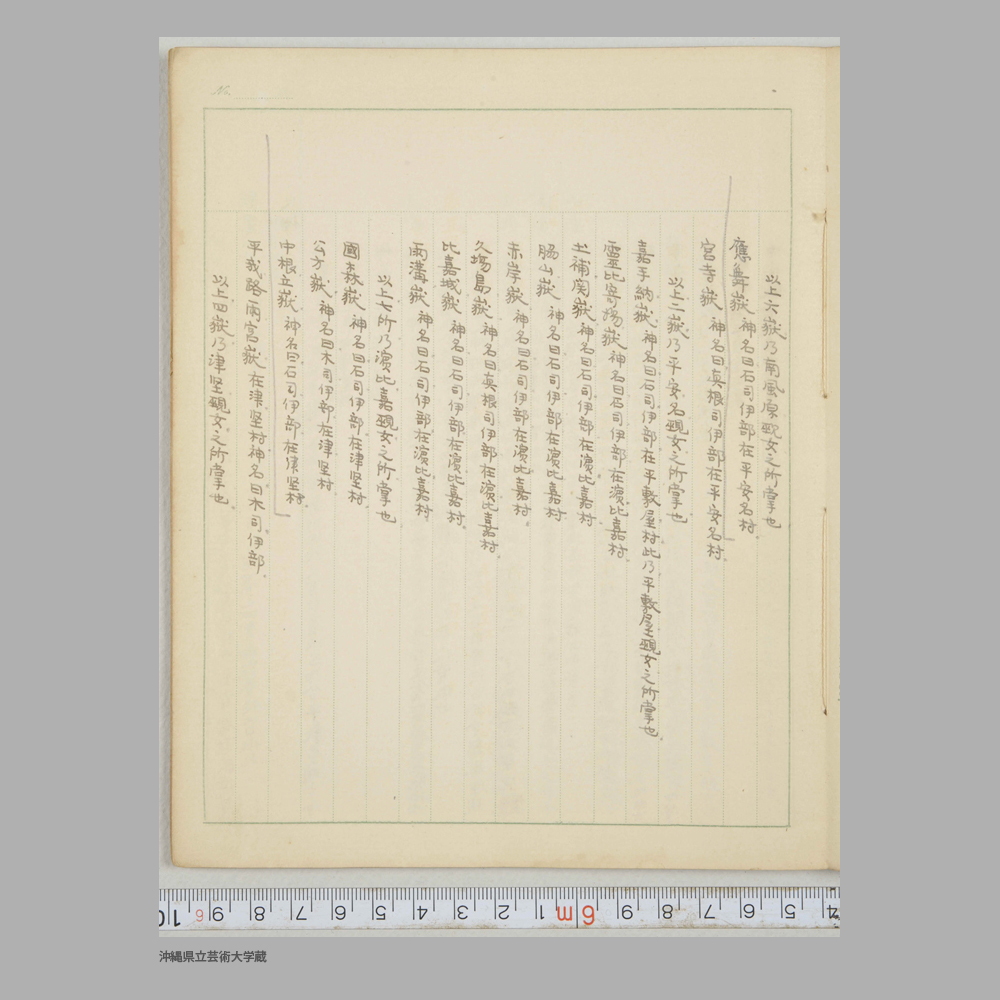 以上六嶽乃南風原覡女之所掌也
應舞嶽 神名曰石司伊部在平安名村。
宮寺嶽 神名曰真根司伊部在平安名村。
以上二嶽乃平安名覡女之所掌也
嘉手納嶽 神名曰石司伊部在平敷屋村此乃平敷屋覡女之所掌也。
靈比寄揚嶽 神名曰石司伊部在濱比嘉村。
土補関嶽 神名曰石司伊部在濱比嘉村
脇山嶽 神名曰石司伊部在濱比嘉村
赤岸嶽 神名曰石司伊部在濱比嘉村。
久場島嶽 神名曰真根司伊部在濱比嘉村。
比嘉城嶽 神名曰石司伊部在濱比嘉村。
雨溝嶽 神名曰石司伊部在濱比嘉村
以上七所乃濱比嘉覡女之所掌也
國森嶽 神名曰石司伊部在津堅村
公方嶽 神名曰木司伊部在津堅村
中根立嶽 神名曰石司伊部在津堅村。
平我路雨宮嶽 在津堅村神名曰木司伊部。
以上四嶽乃津堅覡女之所掌也。
No.
10 9 8 7 6 5 4 3 2 1 6m 9 8 7 6 5 4
沖縄県立芸術大学蔵